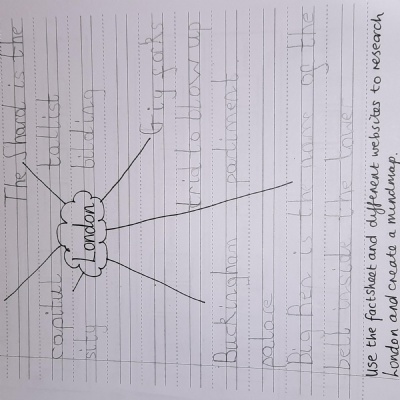 The Shard is the
tallist
bilding
capital
sity
London
Giy foks
trid to blow up
parliment
Buckinghan
palace
Big Ben is the name of the
bell inside the tower
Use the factsheet and different websites to research
London and create a mindmap.